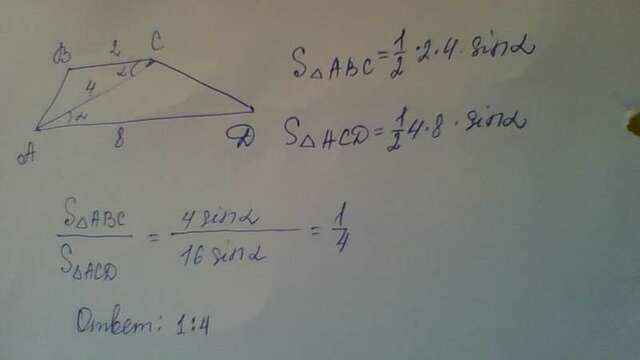 B 2 C
4 2
2
A 8 D
S△ABC = 1/2 · 2 · 4 · sin2
S△ACD = 1/2 4 · 8 · sin2
S△ABC / S△ACD = 4 sin2 / 16 sin2 = 1/4
Ответ: 1:4